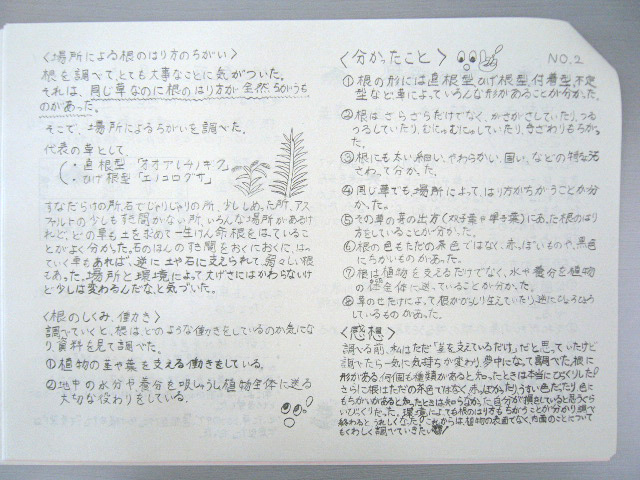 〈場所による根のはり方のちがい〉
根を調べて、とても大事なことに気がついた。
それは、同じ草なのに根のはり方が全然ちがうも
のがあった。
そこで、場所によるちがいを調べた。
代表の草として
・直根型「オオアレチノギク」
・ひげ根型「エノコログサ」
すなだらけの所、石でじゃりじゃりの所、少ししめった所、アス
ファルトの少しも間がない所、いろんな場所があるけ
れど、どの草も土を求めて一生けん命根をはっているこ
とがよく分かった。石のほんの間をおくにおくに、はっ
ていく草もあれば、逆に土や石に支えられて、弱々しい根
もあった。場所と環境によって大げさにはかわらないけ
ど少しは変わるんだな、と気づいた。
〈根のしくみ、働き〉
調べていくと、根は、どのような働きをしているのか気にな
り、資料を見て調べた。
①植物の茎や葉を支える働きをしている。
②地中の水分や養分を吸しゅうし植物全体に送る
大切な役わりをしている。
〈分かったこと〉
NO.2
①根の形には直根型、ひげ根型、付着型、不定
型など草によっていろんな形があることが分かった。
②根はさらさらだけでなく、かさかさしていたり、つる
つるしていたり、むにゅむにゅしていたり、手ざわりもちがっ
た。
③根にも太い、細い、やわらかい、固い、などの特ちょうも
さわって分かった。
④同じ草でも、場所によって、はり方がちがうことが分か
った。
⑤その草の芽の出方(双子葉や単子葉)にあった根のはり
方をしていることが分かった。
⑥根の色もただの茶色ではなく、赤っぽいものや、黒色
にちかいものがあった。
⑦根は植物を支えるだけでなく、水や養分を植物
の全体に送っていることが分かった。
⑧草のせたけによって根がびっしり生えていたり、逆にひょろひょろ
しているものがあった。
〈感想〉
調べる前、私はただ「茎を支えているだけ」だと思っていたけど
調べたら一気に気持ちが変わり、夢中になって調べた。根に
形がある、何個も種類があると知ったときは本当にびっくりした!
さらに根はただの茶色ではなく、赤っぽかったり、うすい色だったり、色に
もちがいがあると知ったときは知らなかった自分が損をしていると思うくら
いびっくりだった。環境によっても根のはり方もちがうことが分かり、調べ
終わるとうれしくなった。これからは、植物の表面でなく、内面のことについて
もくわしく調べていきたい